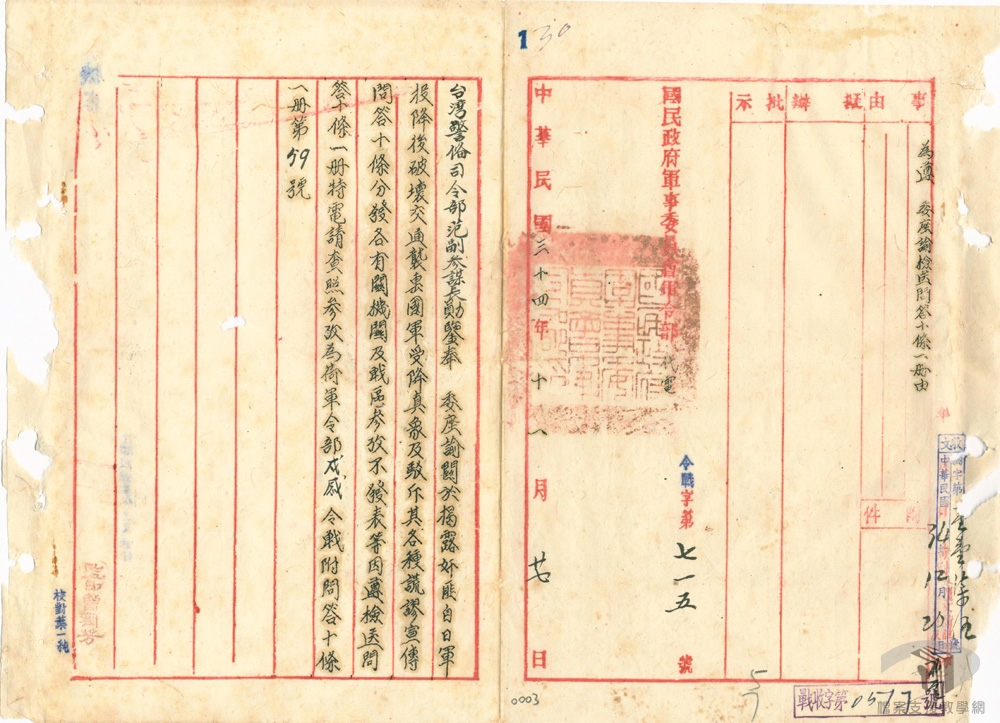 1 30
事由
擬辦
批示
為遵 委座諭檢送問答十條一册由
附件
國民政府軍事委員會軍令部 代電
令戰字第七一五號
中華民國三十四年十一月廿日
收文
中華民國34年12月
戰收字第0517號
57
台灣警俻司令部范副參謀長勛鑒奉 委座諭關於揭露奸匪自日軍
投降後破壞交通襲擊國軍受降真象及駁斥其各種謊謬宣傳
問答十條分發各有關機關及戰區參攷不發表等因遵檢送問
答十條一册特電請查照參攷為荷軍令部戌 令戰附問答十條
一册第59號
校對葉一純
0003
檔案支援教學網